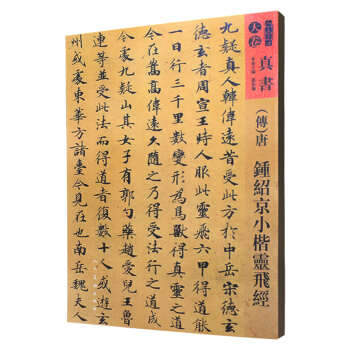 天卷
真書
(傳)唐
鍾紹京小楷靈飛經
九疑真人韓偉遠昔受此方於中岳宋德玄
德玄者周宣王時人服此靈飛六甲得道能
一日行三千里數變形為鳥獸得真靈之道
今在嵩高偉遠久隨之乃得受法行之道成
今處九疑山其女子有郭勺藥趙愛兒王魯
連等並受此法而得道者復數十人或遊玄
州或處東華方諸臺今見在也南岳魏夫人